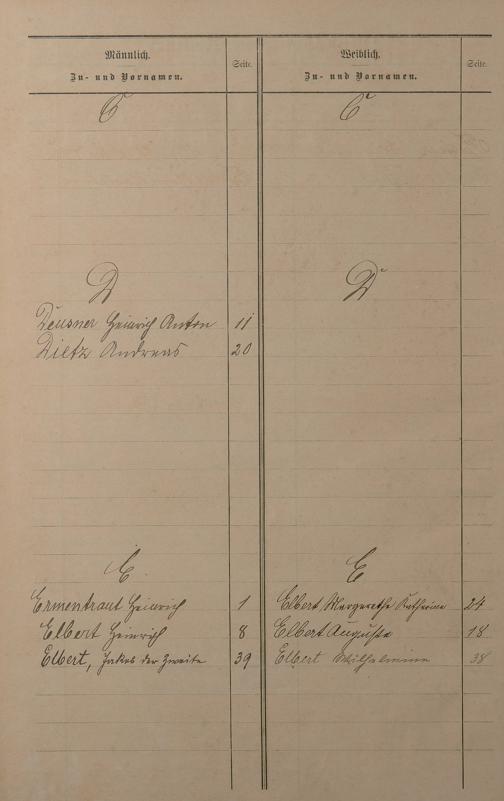 Männlich.
Zu- und Vornamen.
Seite.
C
D
Deusner Heinrich Anton 11
Dietz Andreas 20
E
Ermentraut Heinrich 1
Elbert Heinrich 8
Elbert, Jakob der Zweite 39
Weiblich.
Zu- und Vornamen.
Seite.
C
D
E
Elbert, Margarethe Katharina 24
Elbert Auguste 18
Elbert Wilhelmine 38